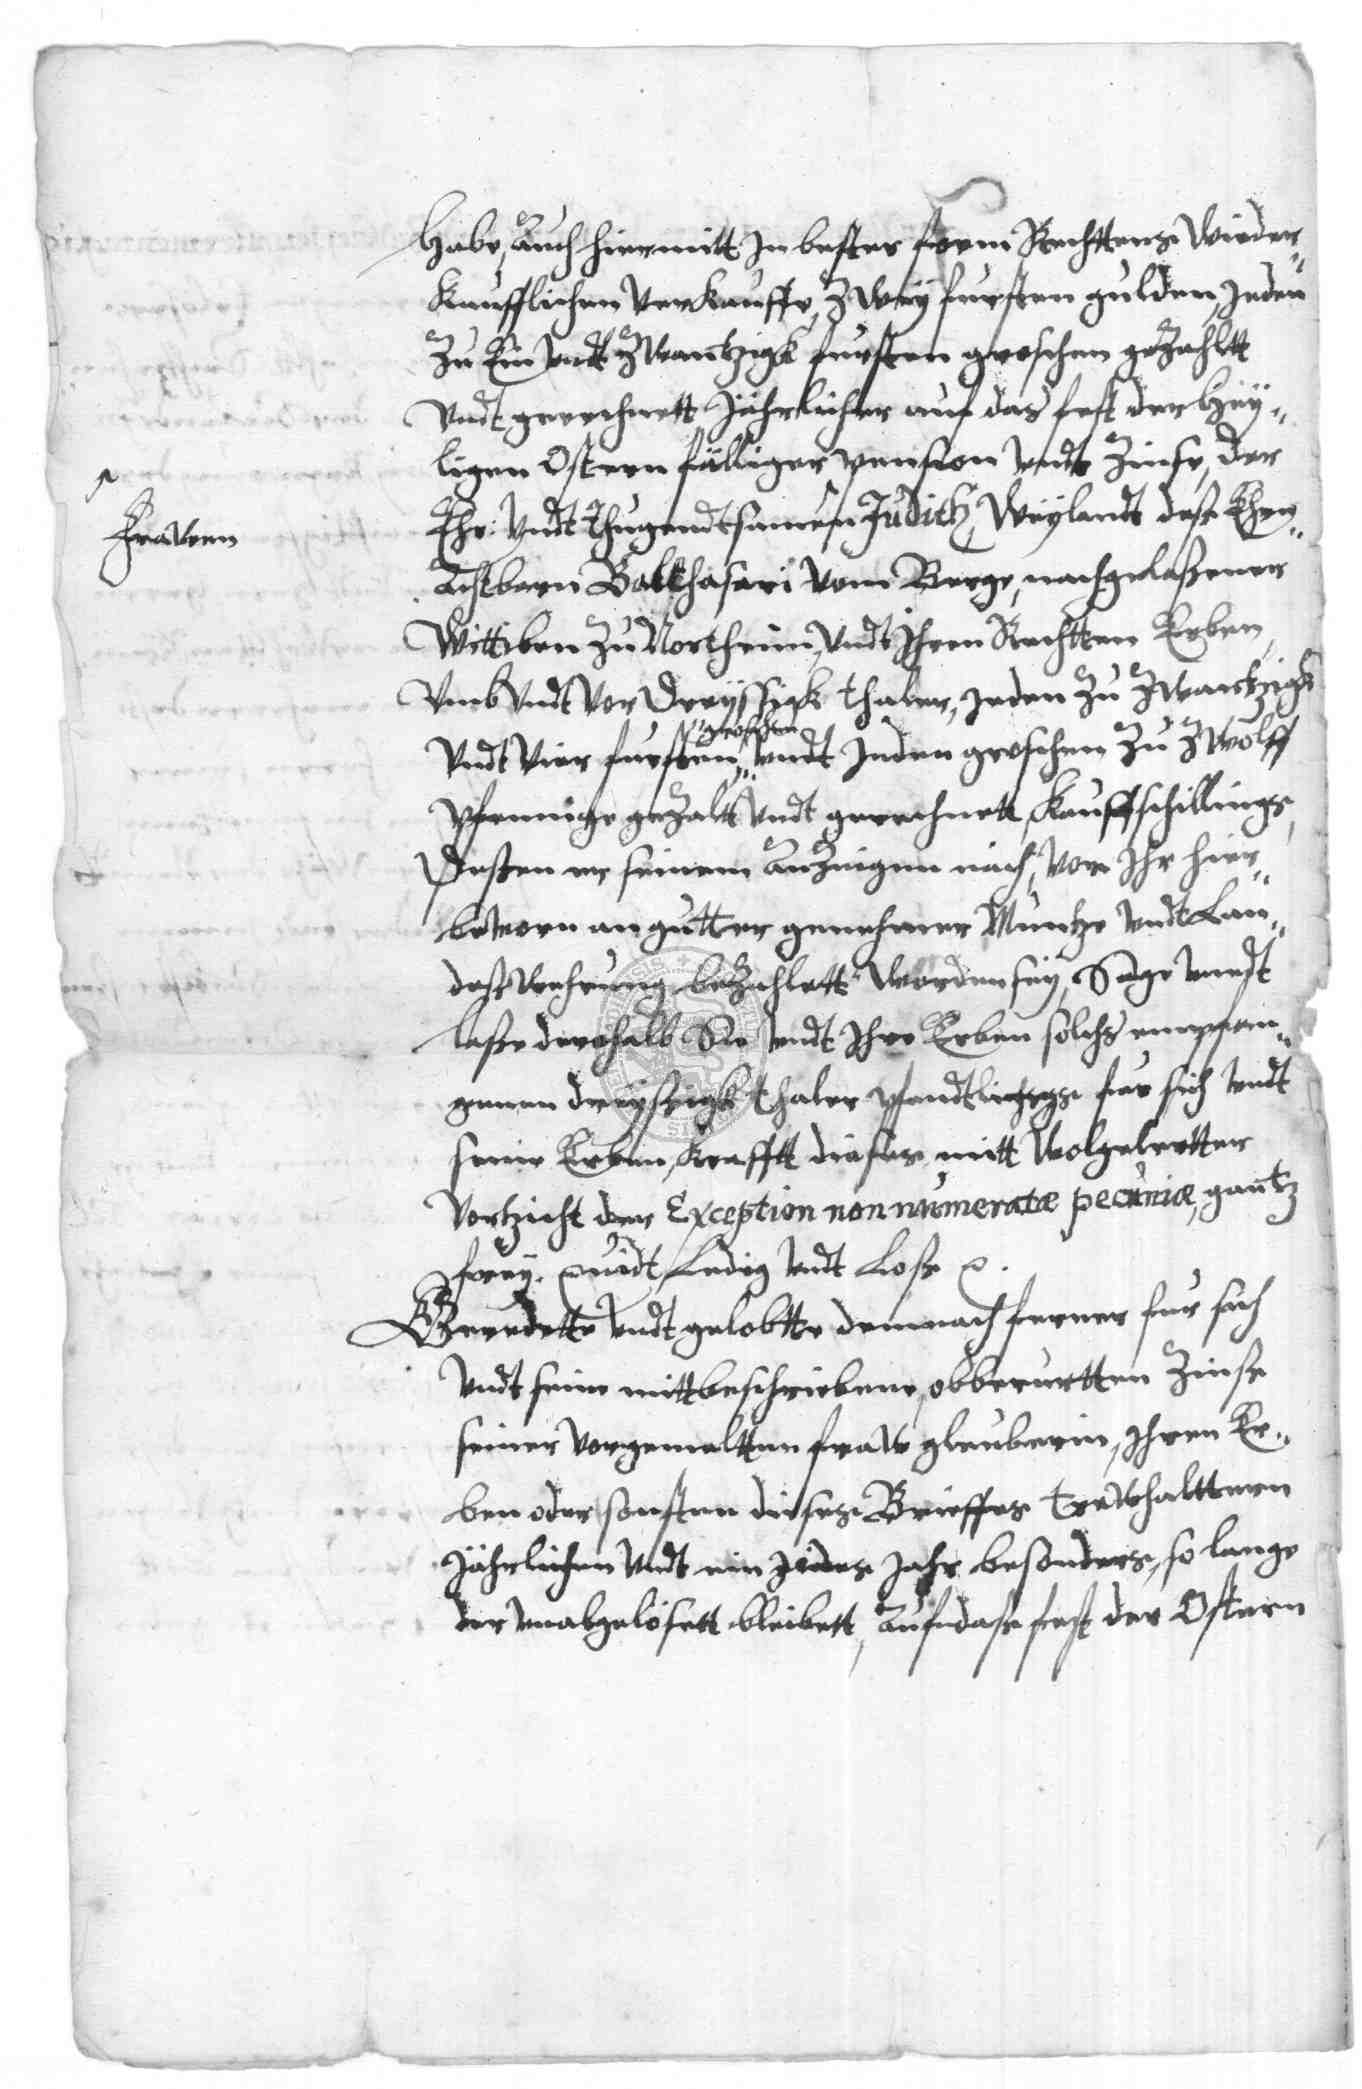 Habe, auch hiermitt In bester form Rechttens Wieder„
Kaufflichen Verkauffe, Zwey fursten gulden, Jeden
Zu Ein Vndt Zwantzigk fursten groschen gezahltt
Vndt gerechnett Jährlicher auf das fest der Hey„
ligen Ostern fälliger pension Vndt Zinse, der
Frawen
Ehr: Vndt Thugendtsamen Judith, Weylandt deß Ehren„
Achtbarn Balthasari Vom Berge, nachgelaßener
Wittiben Zu Northeim, Vndt Ihren Rechtten Erben,
Vmb Vndt Vor Dreyssigk thaler, Jeden Zu Zwantzigk
groschen
Vndt Vier fursten„ Vndt Jeden groschen Zu Zwölff
Pfennige gezaltt Vndt gerechnett, Kauffschillings,
Deßen er seinem anzeigen nach, Von Ihr hier„
bevorn an gutter genehmer Muntze Vndt Lan„
deß Wehrung bezahlett worden sey, Sage Vnndt
laße derohalb Sie Vndt Ihre Erben solchs empfan„
genen dreyßigk thaler Pfandtlichs fur sich Vndt
seine Erben, Krafftt dieses mitt Wolgelertter
Vortzicht der Exception non numeratæ pecuniæ, gantz
frey. quidt, Ledig Vndt Loß
Geredette Vndt gelobtte demnach ferner fur sich
Vndt seine mittbeschriebene, obberurtten Zinse
seiner Vorgemeltten fraw gleuberin, Ihren Er„
ben oder sonsten dieses Brieffes trewhalttern
Jährlichen Vndt ein Jedes Jahr besonders, so lange
der unabgelösett bleibett, auf daß fest der Ostern